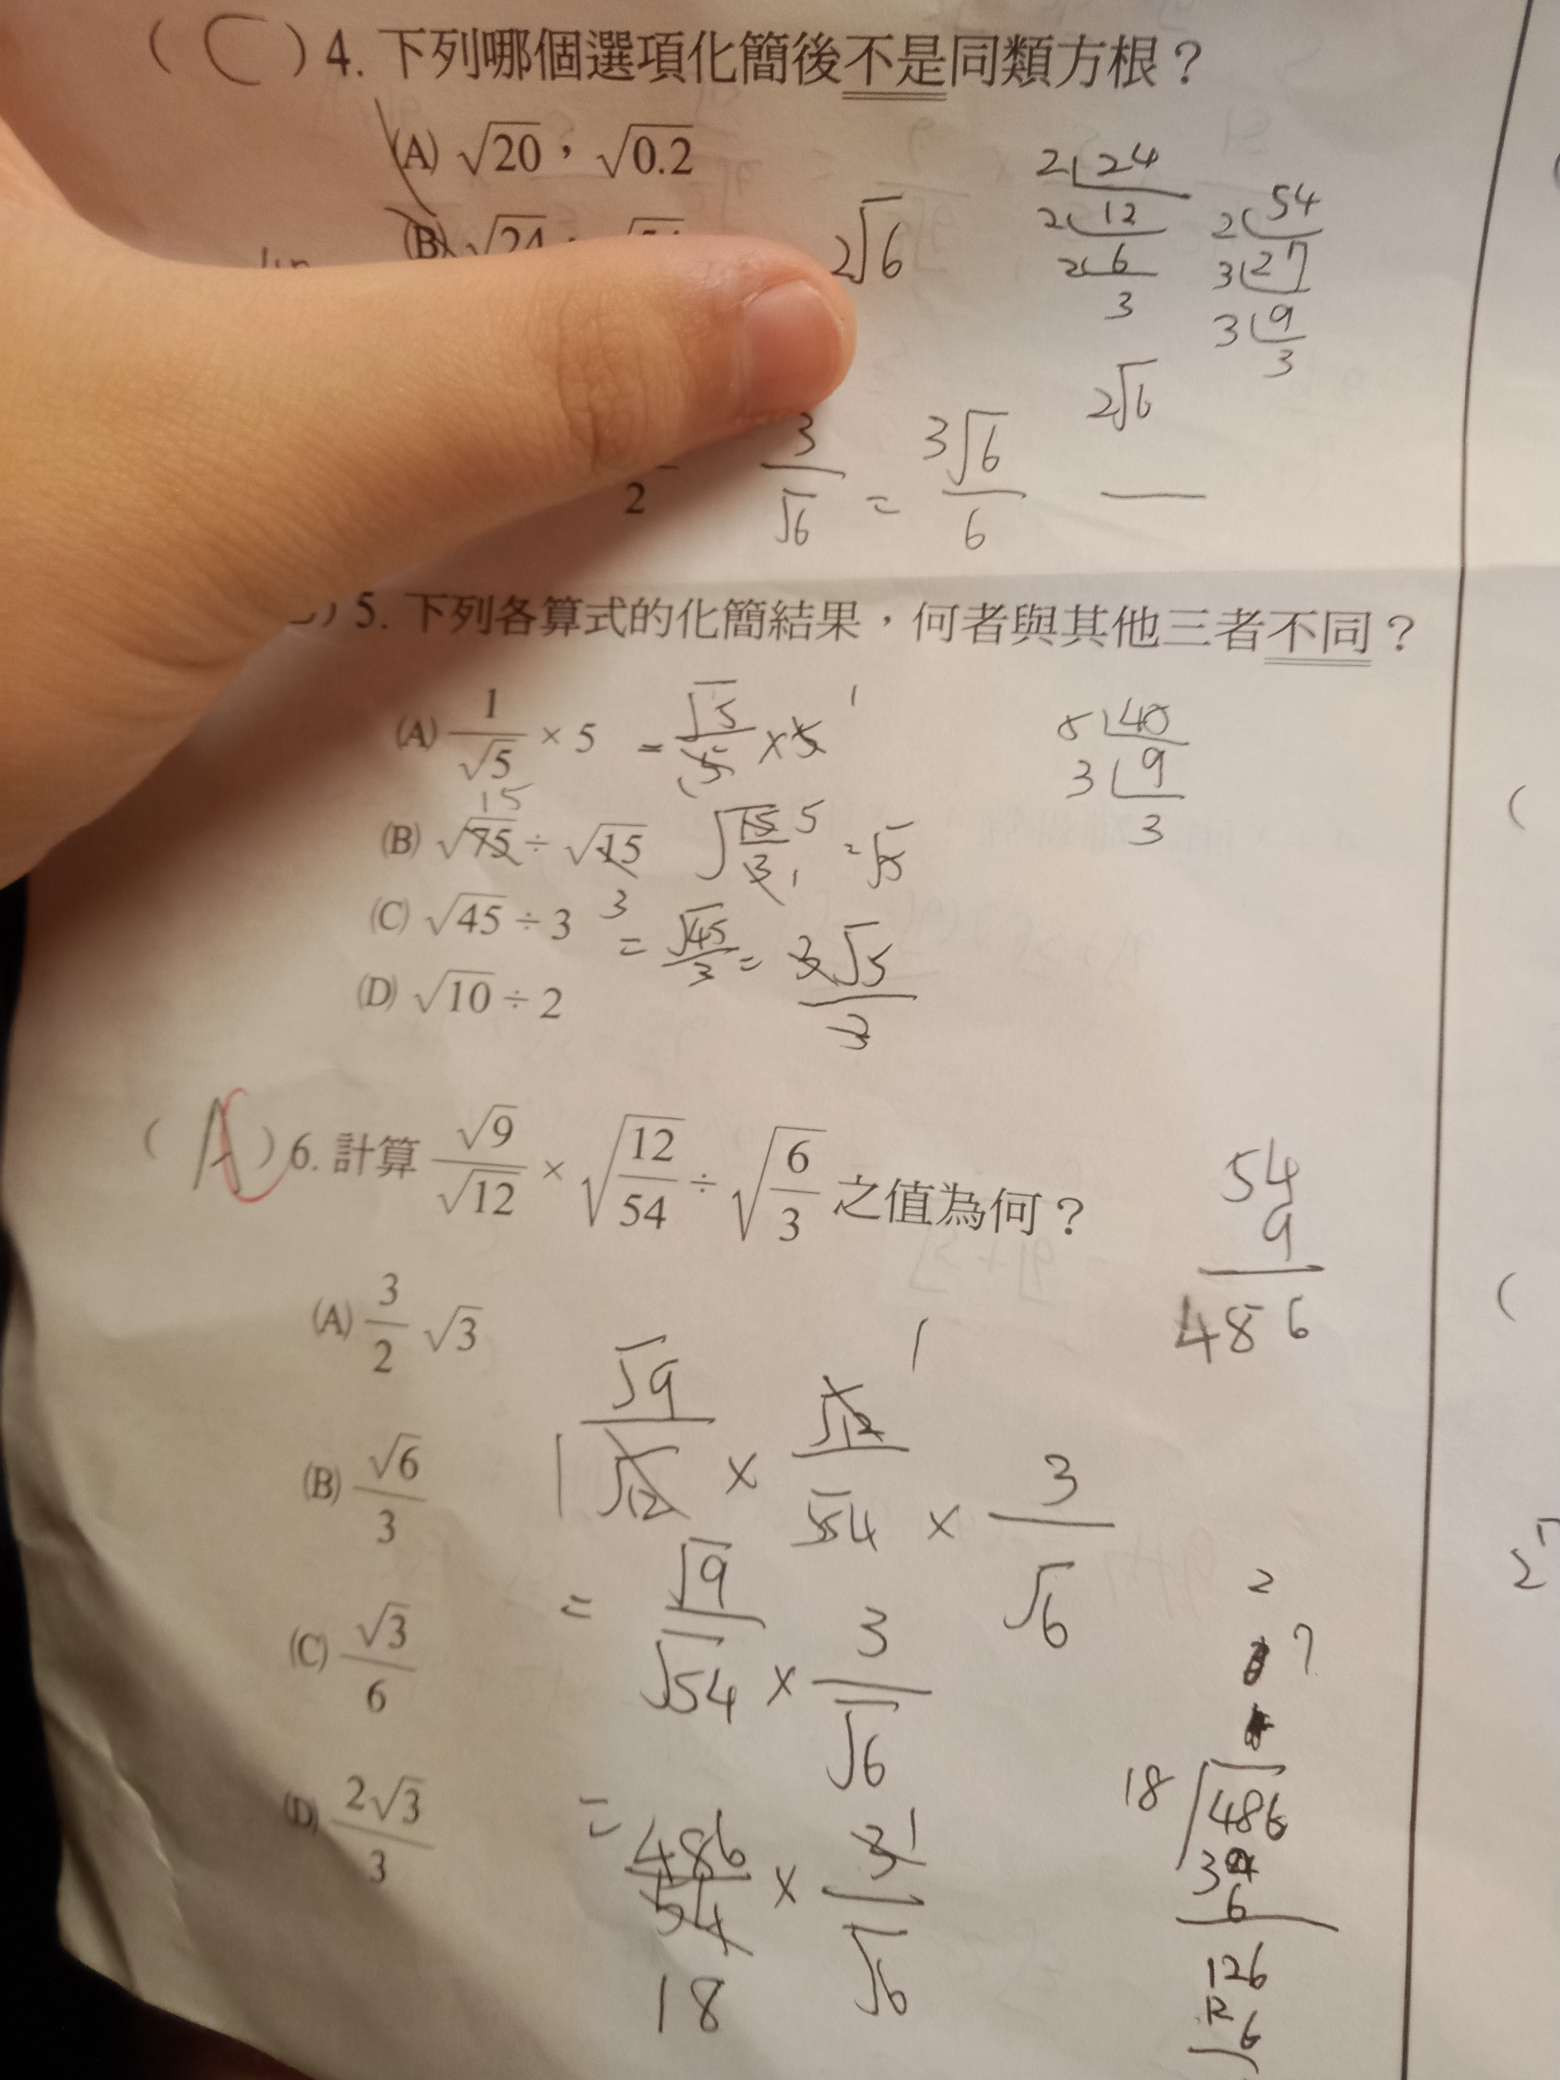 ( C ) 4. 下列哪個選項化簡後不是同類方根？
(A) √20，√0.2
(B) √24
2√6
2 24
2 12
2 6
3
2 54
3 27
3 9
3
2
3/√6 = 3√6/6
2√6
) 5. 下列各算式的化簡結果，何者與其他三者不同？
(A) 1/√5 × 5 = √5/5 × 5 1
15
(B) √75 ÷ √15 √15/3 5 1 = √5
(C) √45 ÷ 3 3 = √45/3 = 3√5/3
(D) √10 ÷ 2
5 45
3 9
3
( A ) 6. 計算 √9/√12 × √(12/54) ÷ √(6/3) 之值為何？
(A) 3/2 √3
(B) √6/3
(C) √3/6
(D) 2√3/3
54
9
486
√9/√12 × √12/√54 × 3/√6
1 1
= √9/√54 × 3/√6
= 486/54 × 3/√6
18 1
2
7
18 486
36
126